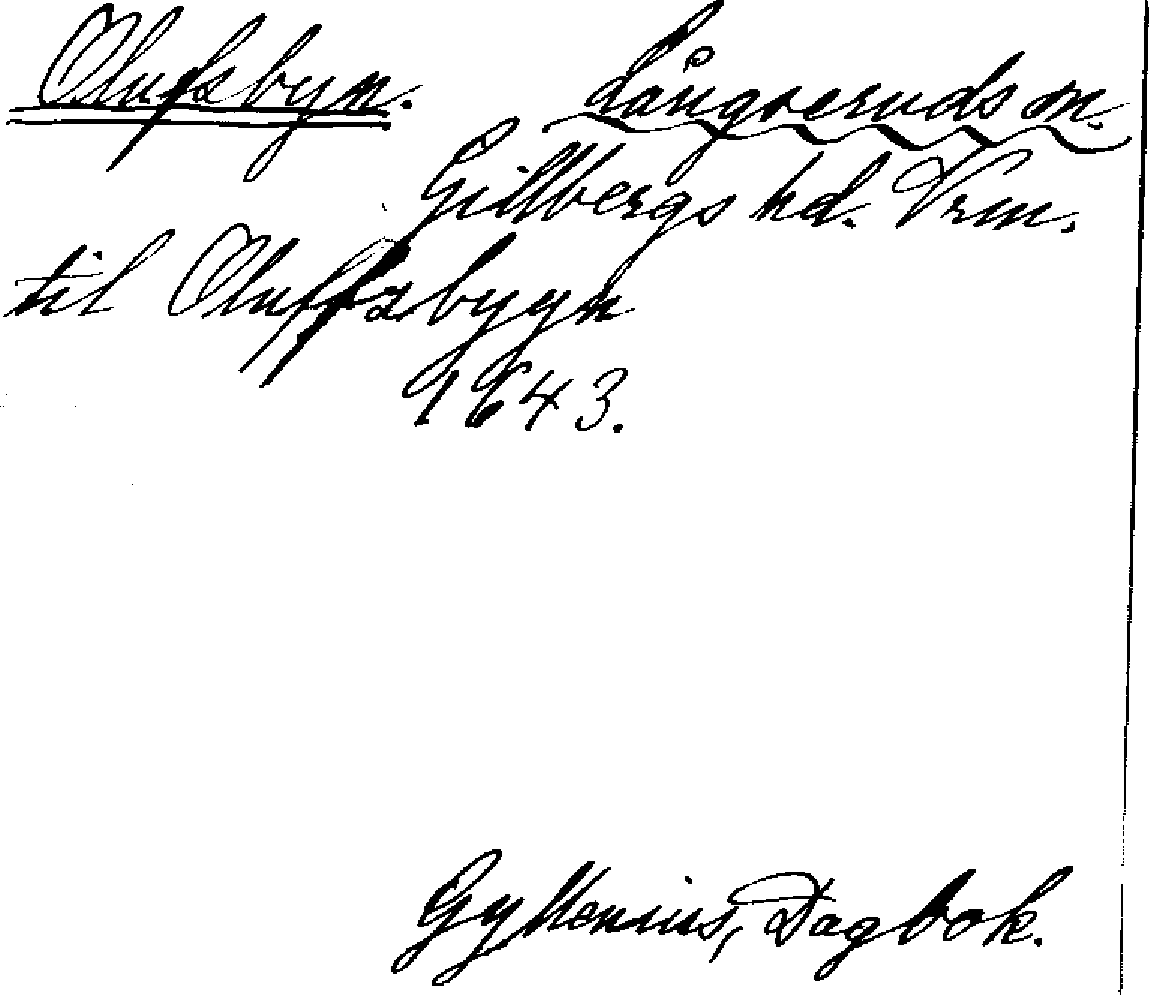 Olufsbyn. Långseruds sn.
Gillbergs hd. Vrm.
til Oluffzbyyn
1643.
Gyllenius, Dagbok.